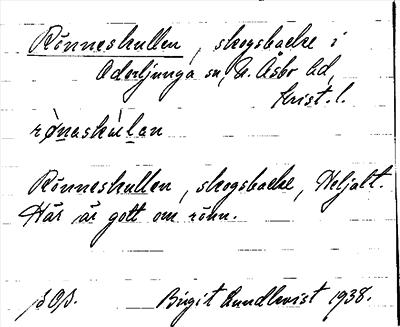 Rönneskullen, skogsbacke i
Oderljunga sn, N. Åsbo hd,
Krist. l.
rø̀naskùlan
Rönneskullen, skogsbacke, Heljalt.
Här är gott om rönn.
Birgit Lundkvist 1938.